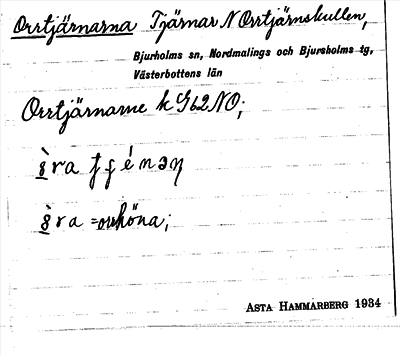 Orrtjärnarna Tjärnar N Orrtjärnskullen,
Bjurholms sn, Nordmalings och Bjurholms tg,
Västerbottens län
Orrtjärnarne k G62NO;
ra
ra = orrhöna;
ASTA HAMMARBERG 1934